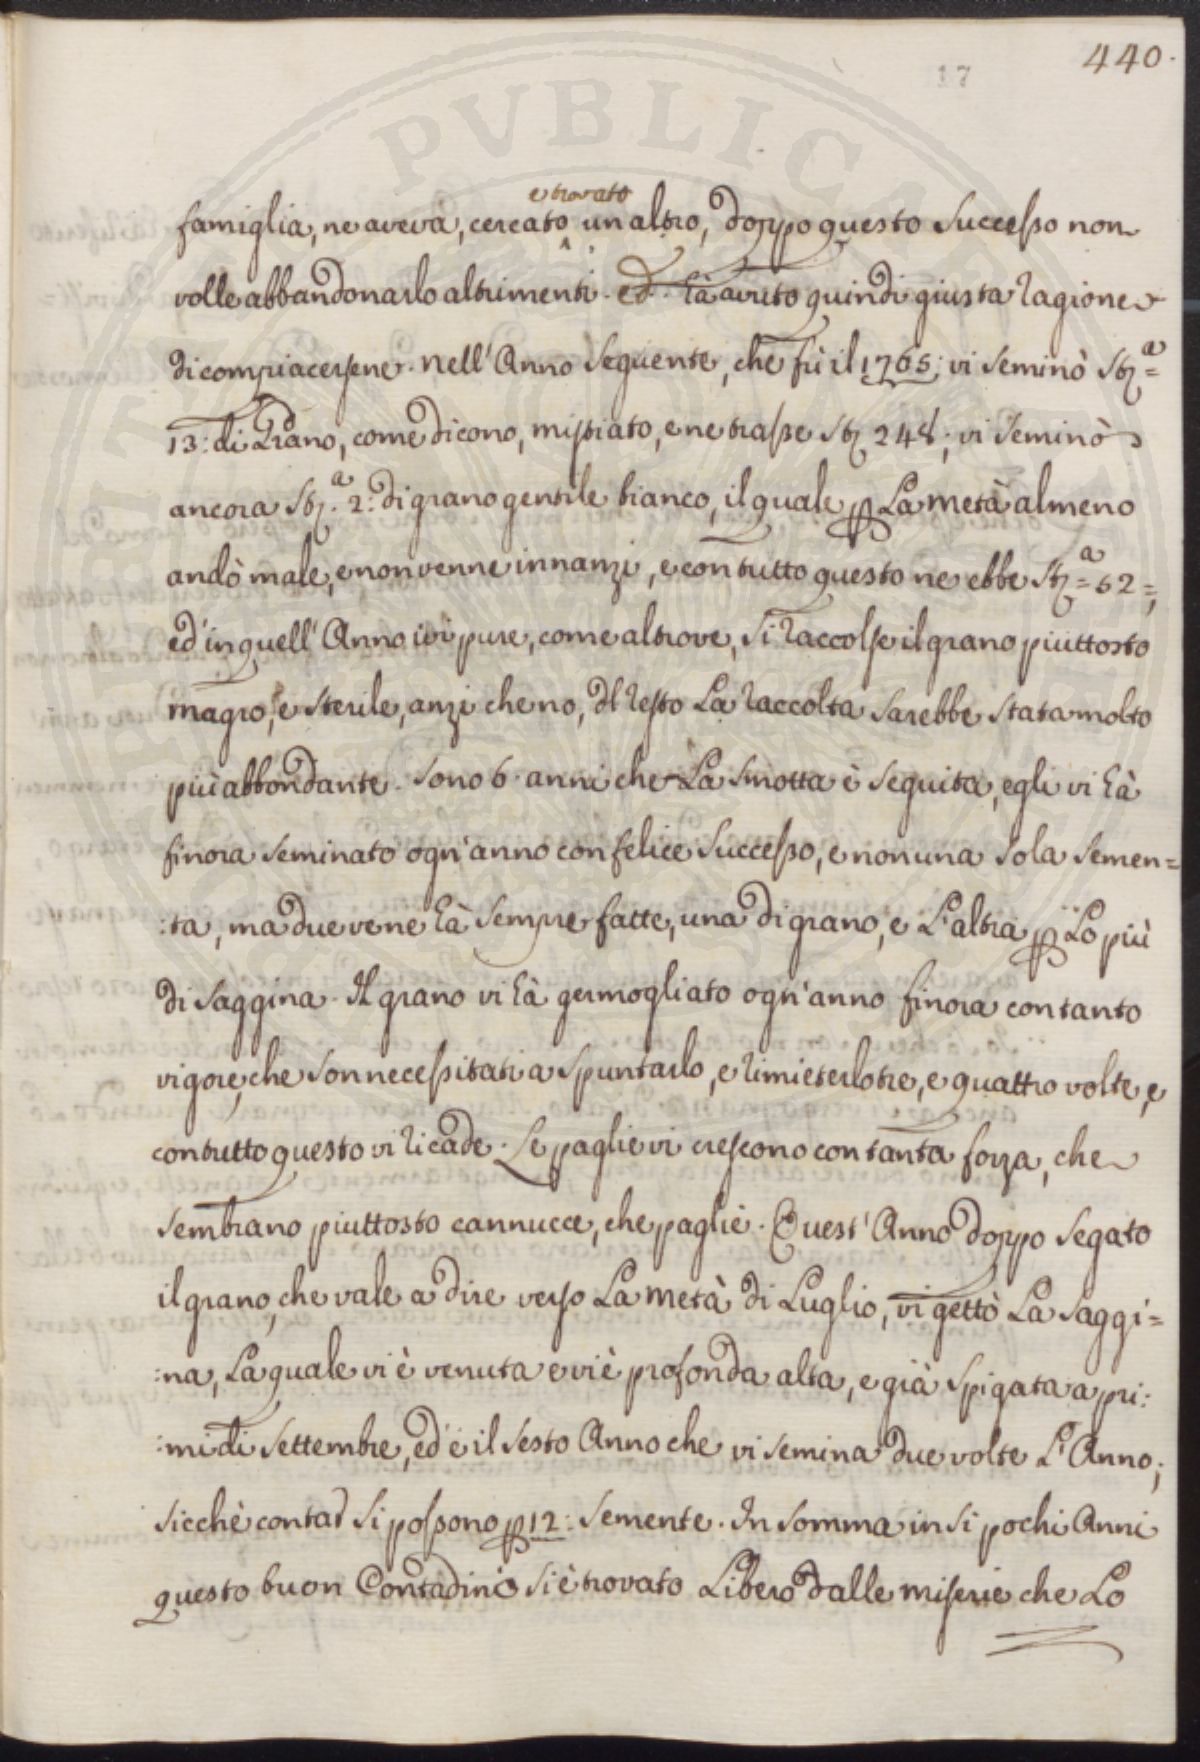 440.
17
PVBLICAE
e trovato
famiglia, ne aveva, cercato un altro, doppo questo successo non
volle abbandonarlo altrimenti. ed hà avuto quindi giusta ragione
di compiacersene. nell'Anno seguente, che fù il 1765; vi seminò Stз.ª=
13: di Grano, come dicono, mistiato, e ne trasse Stз 248; vi seminò
ancora Stз.ª 2: di grano gentile bianco, il quale p La metà almeno
andò male, e non venne innanzi, e con tutto questo ne ebbe Stз=ª 52=,
ed'in quell'Anno ivi pure, come altrove, si raccolse il grano piuttosto
magro, e sterile, anzi che no, del resto La raccolta sarebbe stata molto
più abbondante. sono 6. anni che La Smotta è seguita, egli vi hà
finora seminato ogn'anno con felice successo, e non una sola semen=
:ta, ma due ve ne hà sempre fatte, una di grano, e L'altra p Lo più
di saggina. Il grano vi hà germogliato ogn'anno finora con tanto
vigore, che son necessitati a spuntarlo, e rimieterlo tre, e quattro volte, e
con tutto questo vi ricade. Le paglie vi crescono con tanta forza, che
sembrano piuttosto cannucce, che paglie. Quest'Anno doppo segato
il grano, che vale a dire verso La metà di Luglio, vi gettò La saggi=
:na, La quale vi è venuta e vi è profonda alta, e già spigata a pri:
:mi di settembre, ed'è il sesto Anno che vi semina due volte L'Anno;
sicchè contar si possono p 12: semente. In somma in si pochi Anni
questo buon Contadino si è trovato Libero dalle miserie che Lo